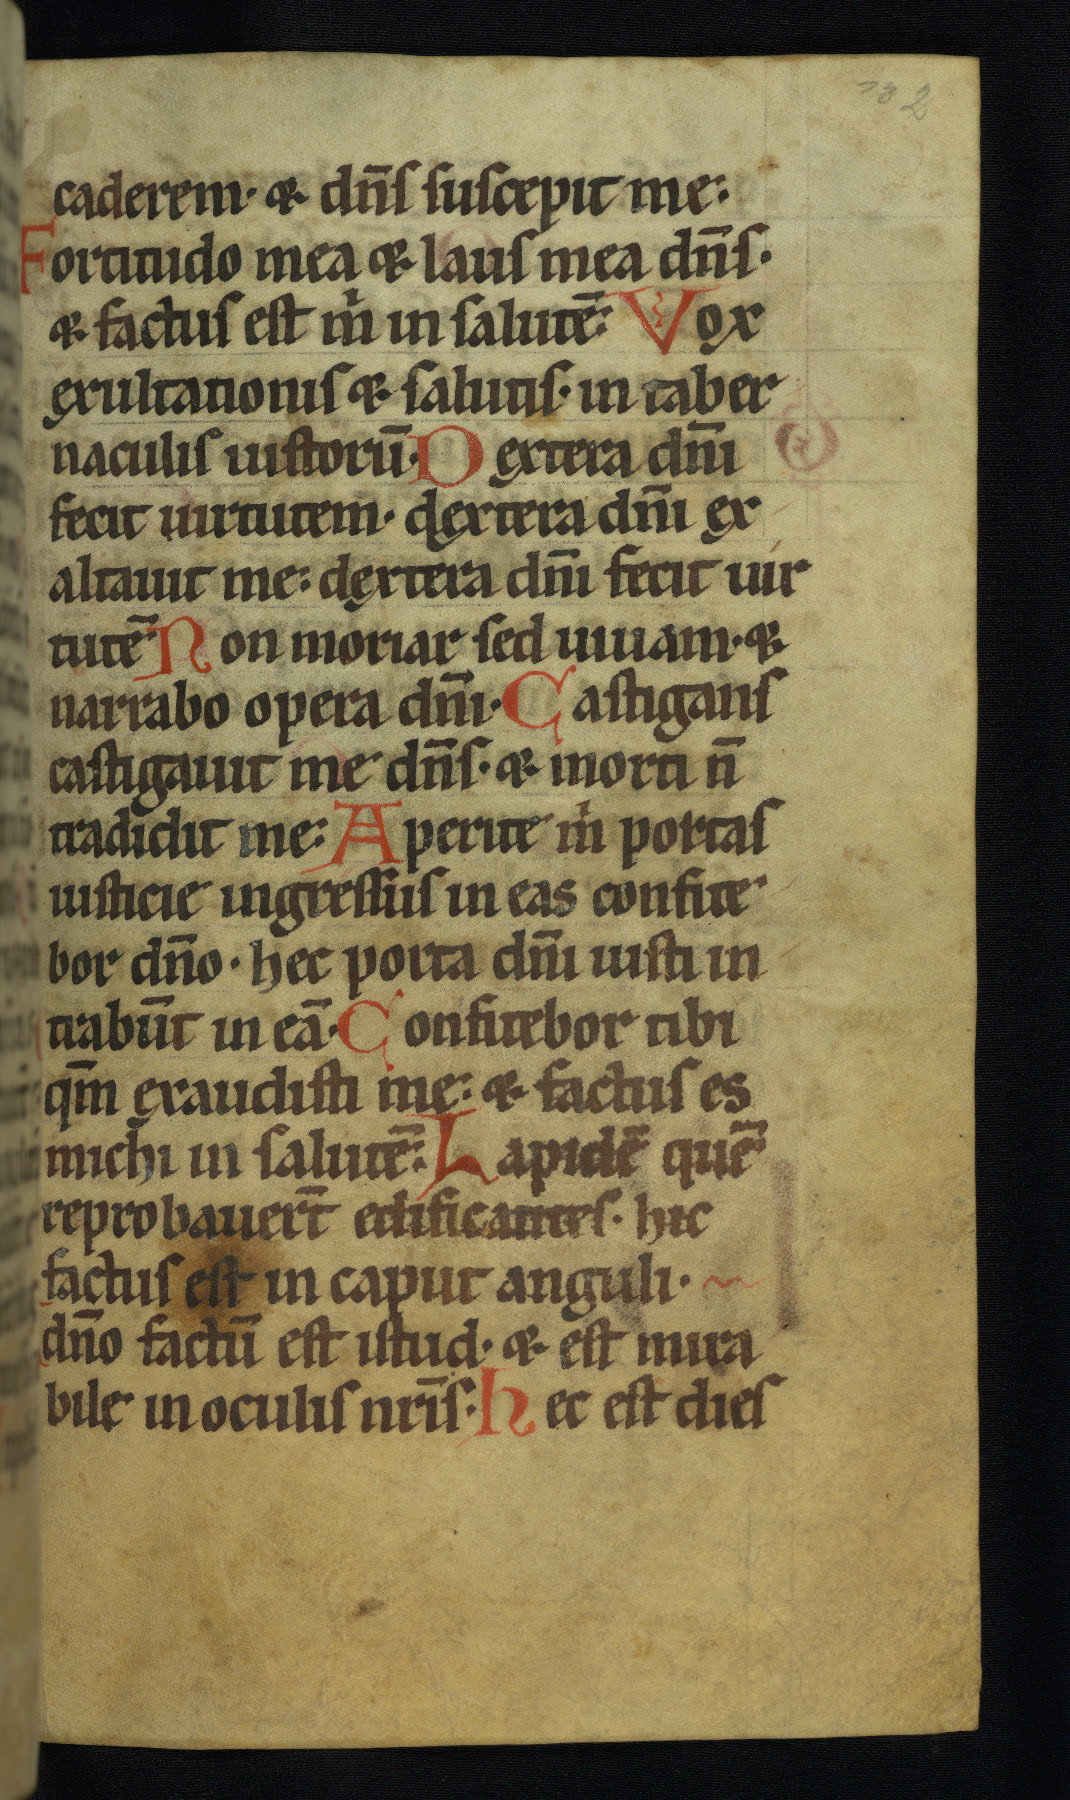 caderem· & dn̄s suscepit me:
Fortitudo mea & laus mea dn̄s·
& factus est m̍ in salutē: Vox
exultationis & salutis· in taber
naculis iustorū· Dextera dn̄i
fecit uirtutem· dextera dn̄i ex
altauit me: dextera dn̄i fecit uir
tutē Non moriar sed uiuam· &
narrabo opera dn̄i· Castigans
castigauit me dn̄s· & morti n̄
tradidit me: Aperite m̍ portas
iusticie ingressus in eas confite
bor dn̄o· hec porta dn̄i iusti in
trabūt in eā· Confitebor tibi
qm̄ exaudisti me: & factus es
michi in salutē: Lapidē quē
reprobauer̄t edificantes· hic
factus est in caput anguli·
dn̄o factū est istud· & est mira
bile in oculis nr̄is· hec est dies